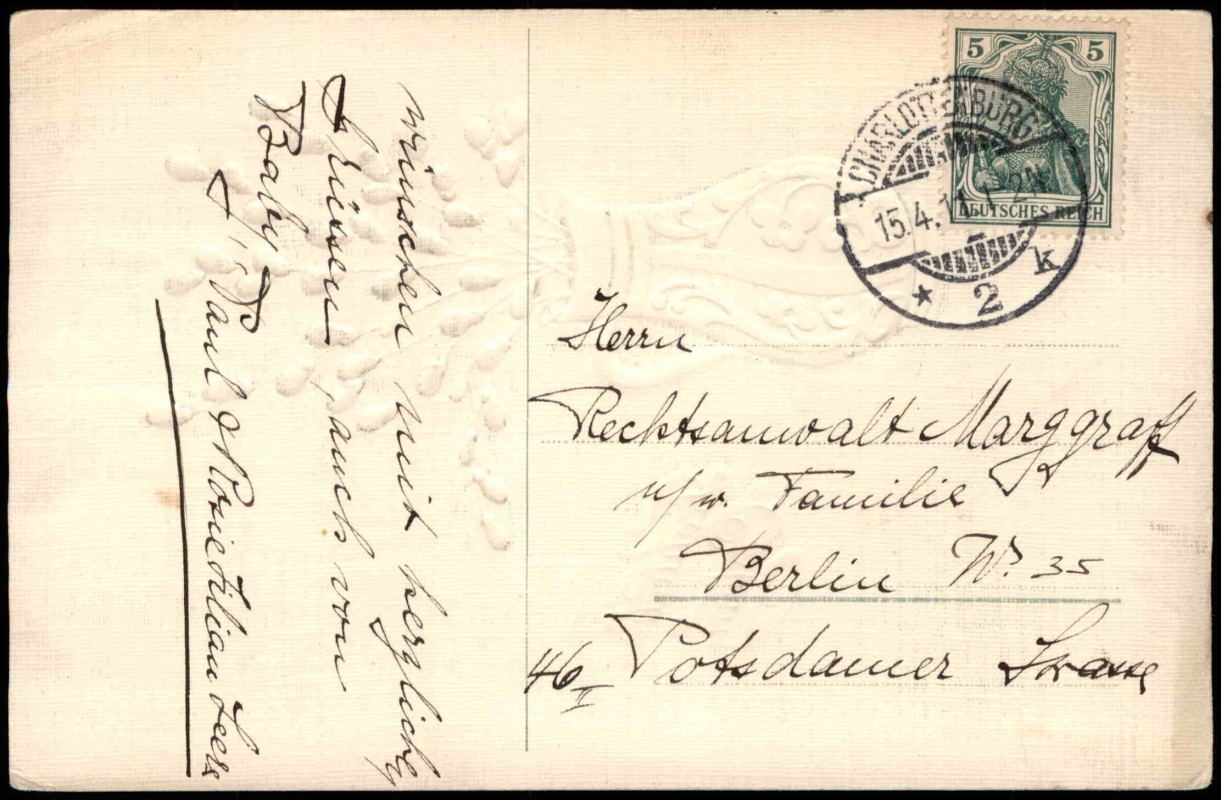 wünschen mit herzlichen
Grüssen, auch von
Baby,
Paul & Rosie Lilian
5 5
DEUTSCHES REICH
CHARLOTTENBURG
15.4.11. 1-2N
* 2 k
Herrn
Rechtsanwalt Marggraff
u/w. Familie
Berlin W. 35
46 II Potsdamer Strasse